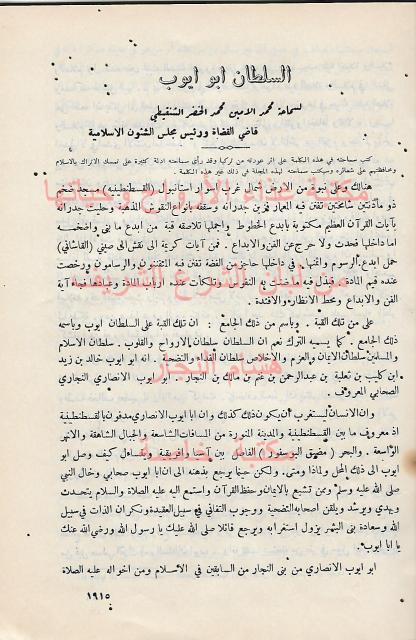 السلطان ابو ايوب
لسماحة محمد الامين محمد الخضر الشنقيطي
قاضي القضاة ورئيس مجلس الشئون الاسلامية
كتب سماحته في هذه الكلمة على اثر عودته من تركيا وقد رأى سماحته ادلة كثيرة على تمسك الاتراك بالاسلام
ومحافظتهم على شعائره وسيكتب سماحته لهذه المجلة في ذلك غير هذه الكلمة .
هنالك وعلى نبوة من الارض شمالي غرب اسوار استانبول (القسطنطينية) مسجد ضخم
ذو مأذنتين شامختين تفنن فيه المعمار فزين جدرانه وسقفه بانواع النقوش الذهبية وحليت جدرانه
بآيات القرآن العظيم مكتوبة بابدع الخطوط واجملها تلاصقه قبة من ابدع ما بنى واضخمه
اما داخلها فحدث ولا حرج عن الفن والابداع . فمن آيات كريمة الى نقش الى صيني (القاشاني)
حمل ابدع الرسوم واتمها ، في داخلها حاجز من الفضة تفنن فيه المتفننون والرسامون ورخصت
عنده قيم المادة فبذل فيه ما ضنت به النفوس وتلكأت عنده ارباب اللذة وعبادها فجاء آية
الفن والابداع ومحط الانظار والافئدة .
على من تلك القبة . وباسم من ذلك الجامع : ان تلك القبة على السلطان ايوب وباسمه
ذلك الجامع . كما يسميه الترك نعم ان السلطان سلطان الارواح والقلوب . سلطان الاسلام
والمسلمين سلطان الايمان والعزم والاخلاص سلطان الفداء والتضحية . انه ابو ايوب خالد بن زيد
ابن كليب بن ثعلبة بن عبدالرحمن بن غنم بن مالك بن النجار . ابو ايوب الانصاري النجاري
الصحابي المعروف .
وان الانسان ليستغرب ان يكون ذلك كذلك وان ابا ايوب الانصاري مدفون بالقسطنطينية
اذ معروف ما بين القسطنطينية والمدينة المنورة من المسافات الشاسعة والجبال الشاهقة والانهر
الواسعة . والبحر (مضيق البوسفور) الفاصل بين آسيا وافريقية . ويتساءل كيف وصل ابو
ايوب الى ذلك المحل ولماذا ومتى . ولكن حينما يرجع بذهنه الى ان ابا ايوب صحابي وخال النبي
صلى الله عليه وسلم وممن تشبع بالايمان وحفظ القرآن واستمع اليه عليه الصلاة والسلام يتحدث
ويهدي ويرشد ويلقن اصحابه التضحية ووجوب التفاني في سبيل العقيدة ونكران الذات في سبيل
الله وسعادة بني البشر يزول استغرابه ويرجع قائلا صلى الله عليك يا رسول الله ورضي الله عنك
يا ابا ايوب .
ابو ايوب الانصاري من بنى النجار من السابقين في الاسلام ومن اخواله عليه الصلاة
١٩١٥